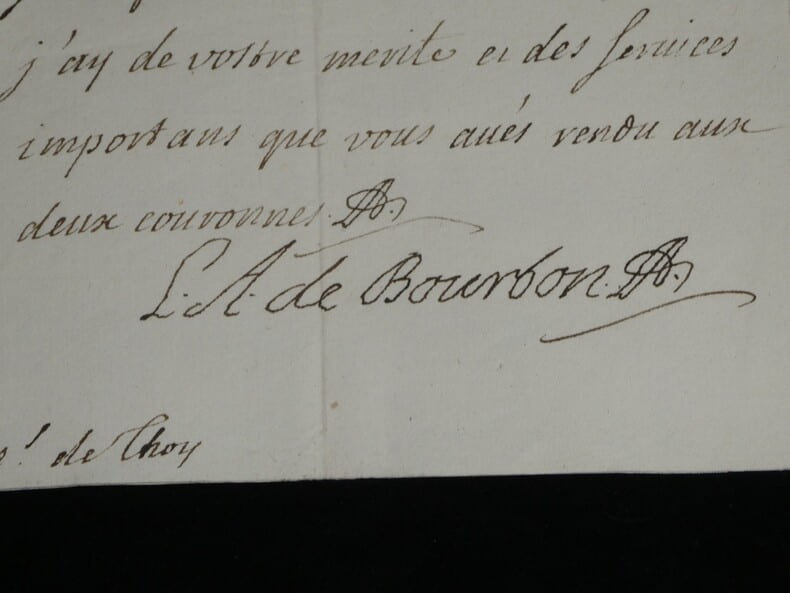 j'ay de vostre merite et des services
importans que vous aués rendu aux
deux couronnes.
L. A. de Bourbon.
de Thoy